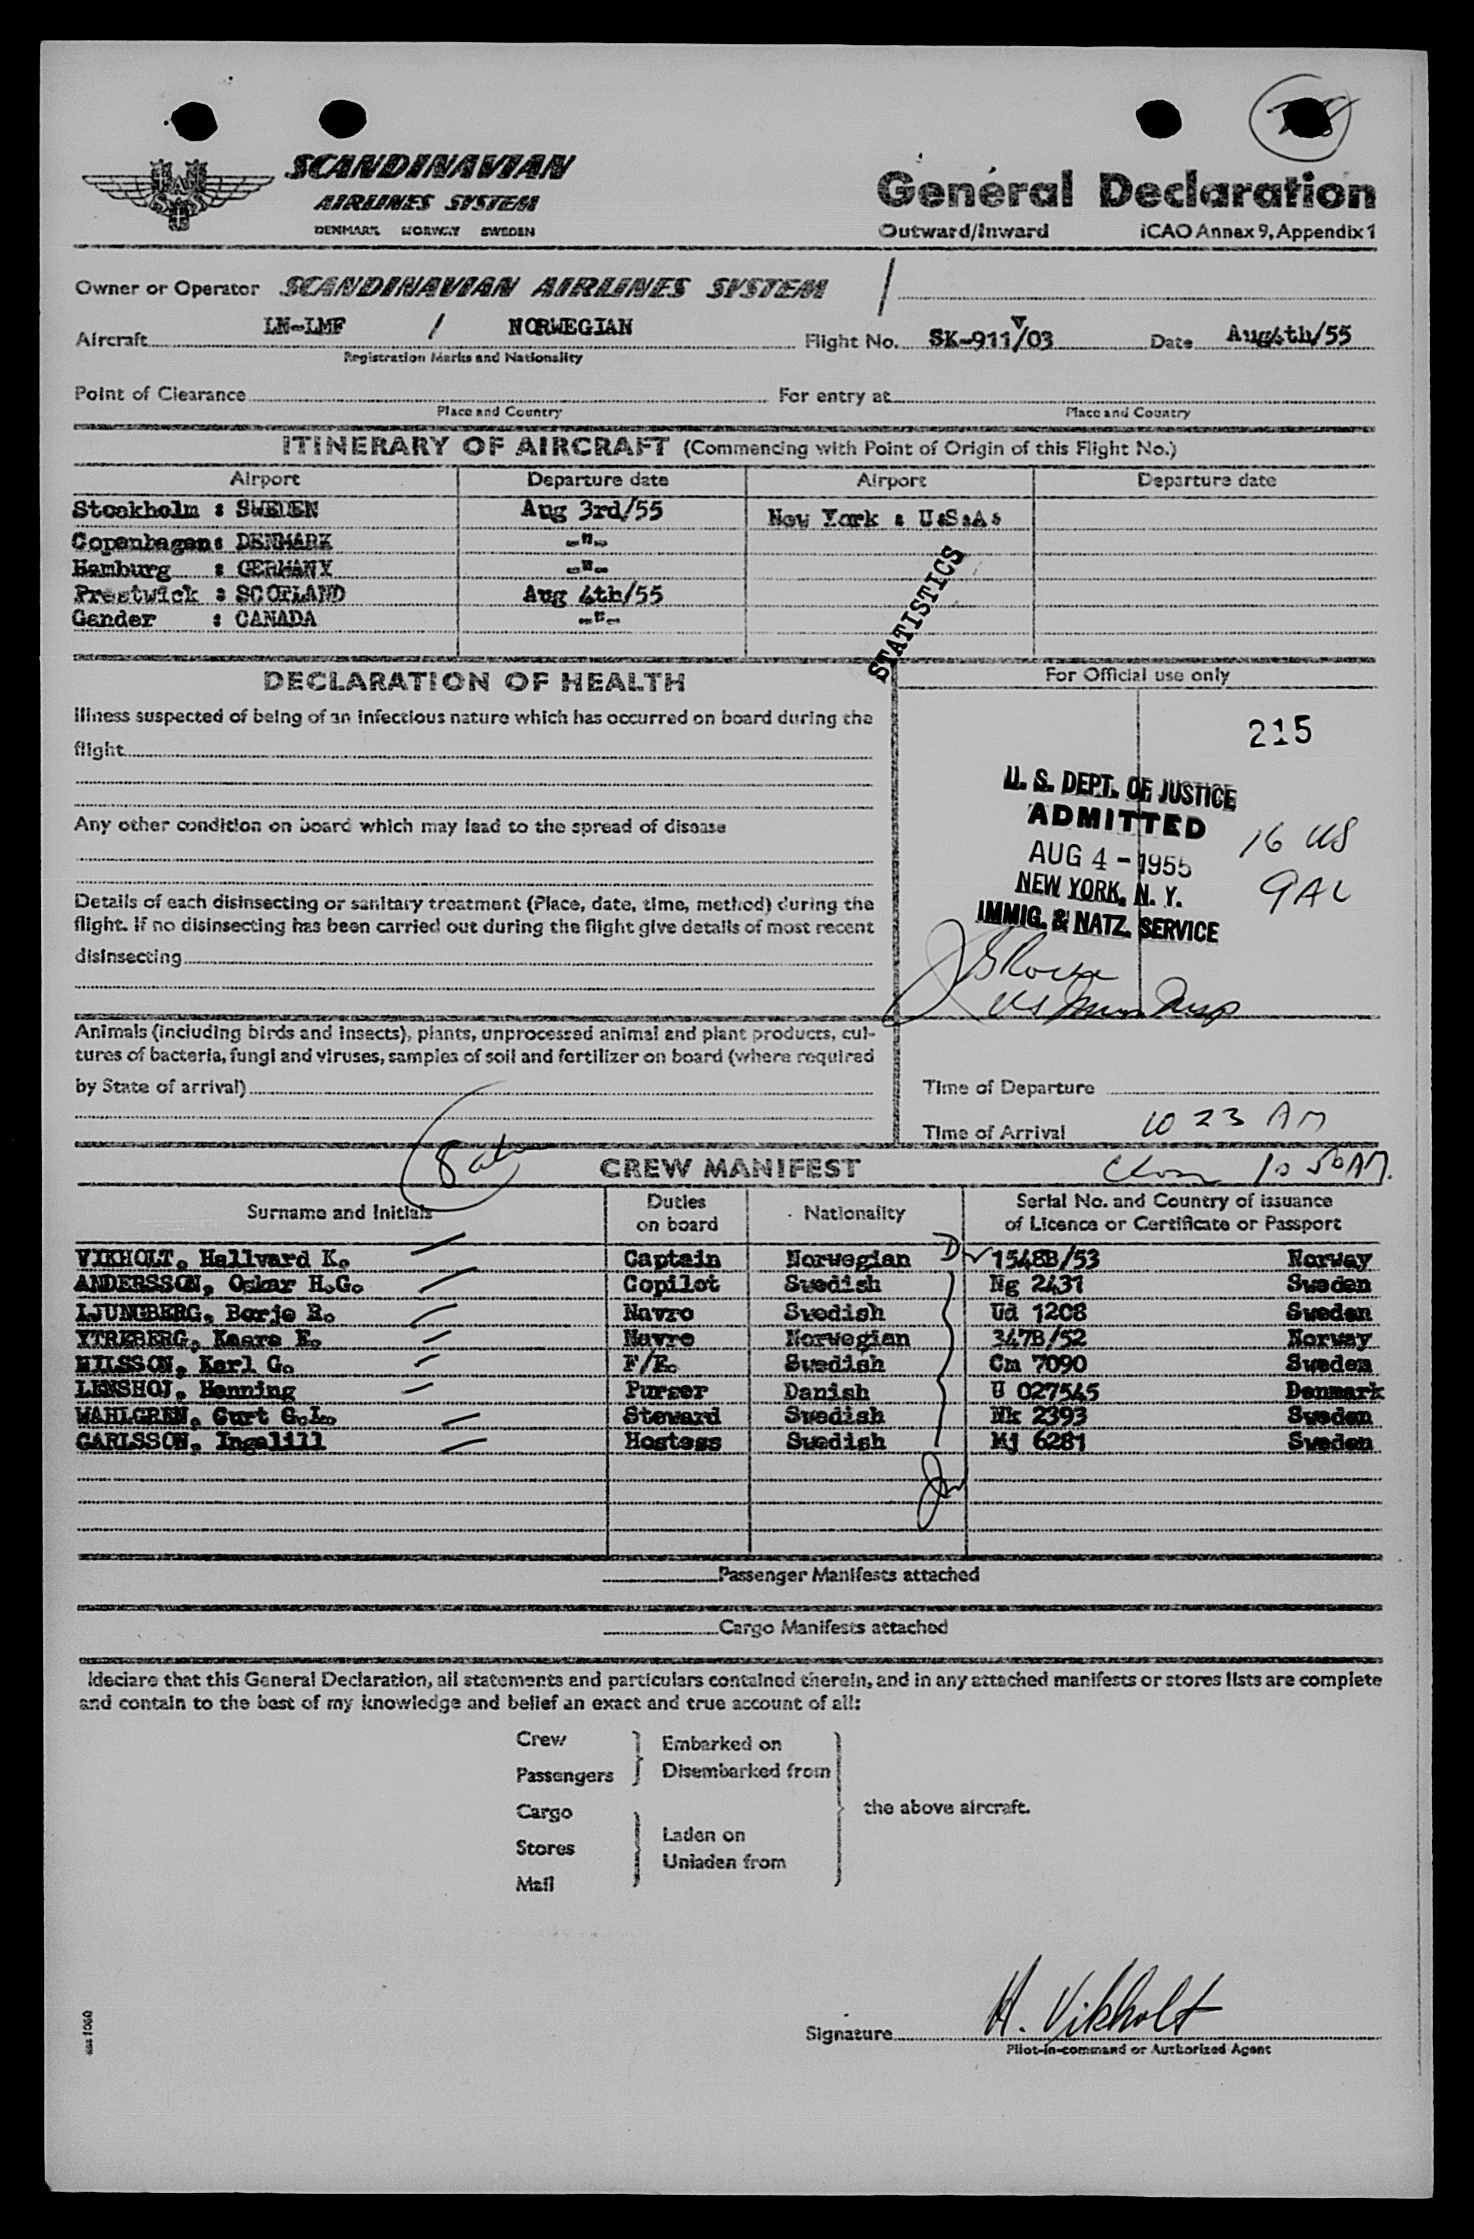 SCANDINAVIAN
AIRLINES SYSTEM
DENMARK NORWAY SWEDEN
General Declaration
Outward/Inward ICAO Annex 9, Appendix 1
Owner or Operator SCANDINAVIAN AIRLINES SYSTEM /
Aircraft LN-LMF / NORWEGIAN Flight No. SK-911/03 Date Aug4th/55
Registration Marks and Nationality
Point of Clearance For entry at
Place and Country Place and Country
ITINERARY OF AIRCRAFT (Commencing with Point of Origin of this Flight No.)
Airport Departure date Airport Departure date
Stockholm : SWEDEN Aug 3rd/55 New York : U.S.A.
Copenhagen: DENMARK -"-
Hamburg : GERMANY -"-
Prestwick : SCOTLAND Aug 4th/55
Gander : CANADA -"-
STATISTICS
DECLARATION OF HEALTH
For Official use only
Illness suspected of being of an infectious nature which has occurred on board during the
flight
215
U. S. DEPT. OF JUSTICE
ADMITTED
AUG 4 - 1955
NEW YORK, N. Y.
IMMIG. & NATZ. SERVICE
16 US
9 AL
Any other condition on board which may lead to the spread of disease
Details of each disinsecting or sanitary treatment (Place, date, time, method) during the
flight. If no disinsecting has been carried out during the flight give details of most recent
disinsecting
Animals (including birds and insects), plants, unprocessed animal and plant products, cul-
tures of bacteria, fungi and viruses, samples of soil and fertilizer on board (where required
by State of arrival)
Time of Departure
Time of Arrival 10 23 AM
10 50 AM.
CREW MANIFEST
Surname and Initials Duties on board Nationality Serial No. and Country of issuance of Licence or Certificate or Passport
VIKHOLT, Hallvard K. Captain Norwegian D 1548B/53 Norway
ANDERSSON, Oskar H.G. Copilot Swedish Ng 2431 Sweden
LJUNGBERG, Borje R. Navro Swedish Ud 1208 Sweden
YTREBERG, Kaare E. Navro Norwegian 347B/52 Norway
NILSSON, Karl G. F/E. Swedish Cm 7090 Sweden
LENSHOJ, Henning Purser Danish U 027545 Denmark
WAHLGREN, Curt G.L. Steward Swedish Nk 2393 Sweden
CARLSSON, Ingalill Hostess Swedish Mj 6281 Sweden
Passenger Manifests attached
Cargo Manifests attached
I declare that this General Declaration, all statements and particulars contained therein, and in any attached manifests or stores lists are complete
and contain to the best of my knowledge and belief an exact and true account of all:
Crew
Passengers
Cargo
Stores
Mail
Embarked on
Disembarked from
Laden on
Unladen from
the above aircraft.
Signature H. Vikholt
Pilot-in-command or Authorized Agent
sas 1060